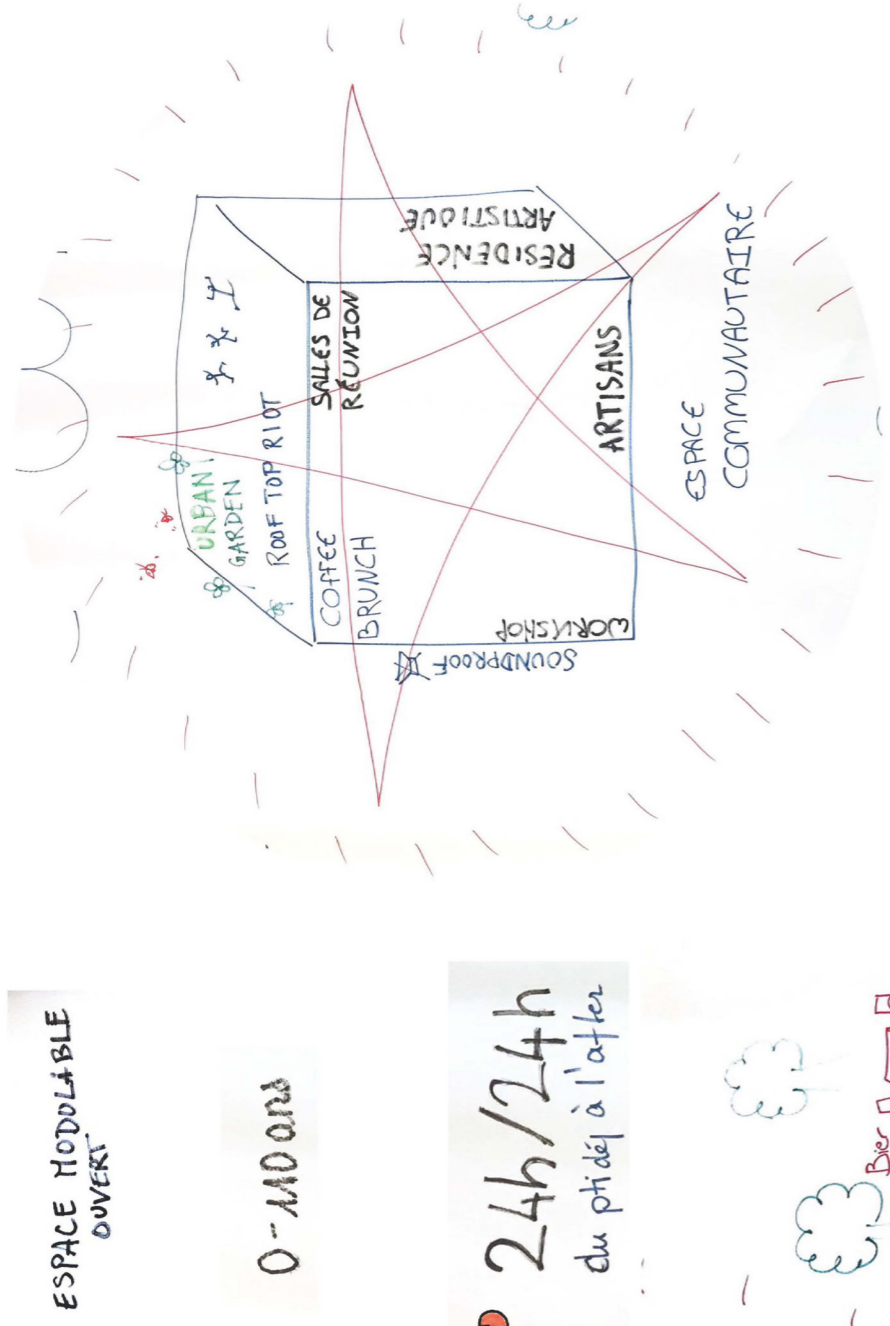 ESPACE MODULABLE
OUVERT
0-110 ans
24h/24h
du ptidéj à l'after
Bier
URBAN
GARDEN
ROOFTOP RIOT
COFFEE
BRUNCH
SALLES DE
RÉUNION
RESIDENCE
ARTISTIQUE
SOUNDPROOF
WORKSHOP
ARTISANS
ESPACE
COMMUNAUTAIRE